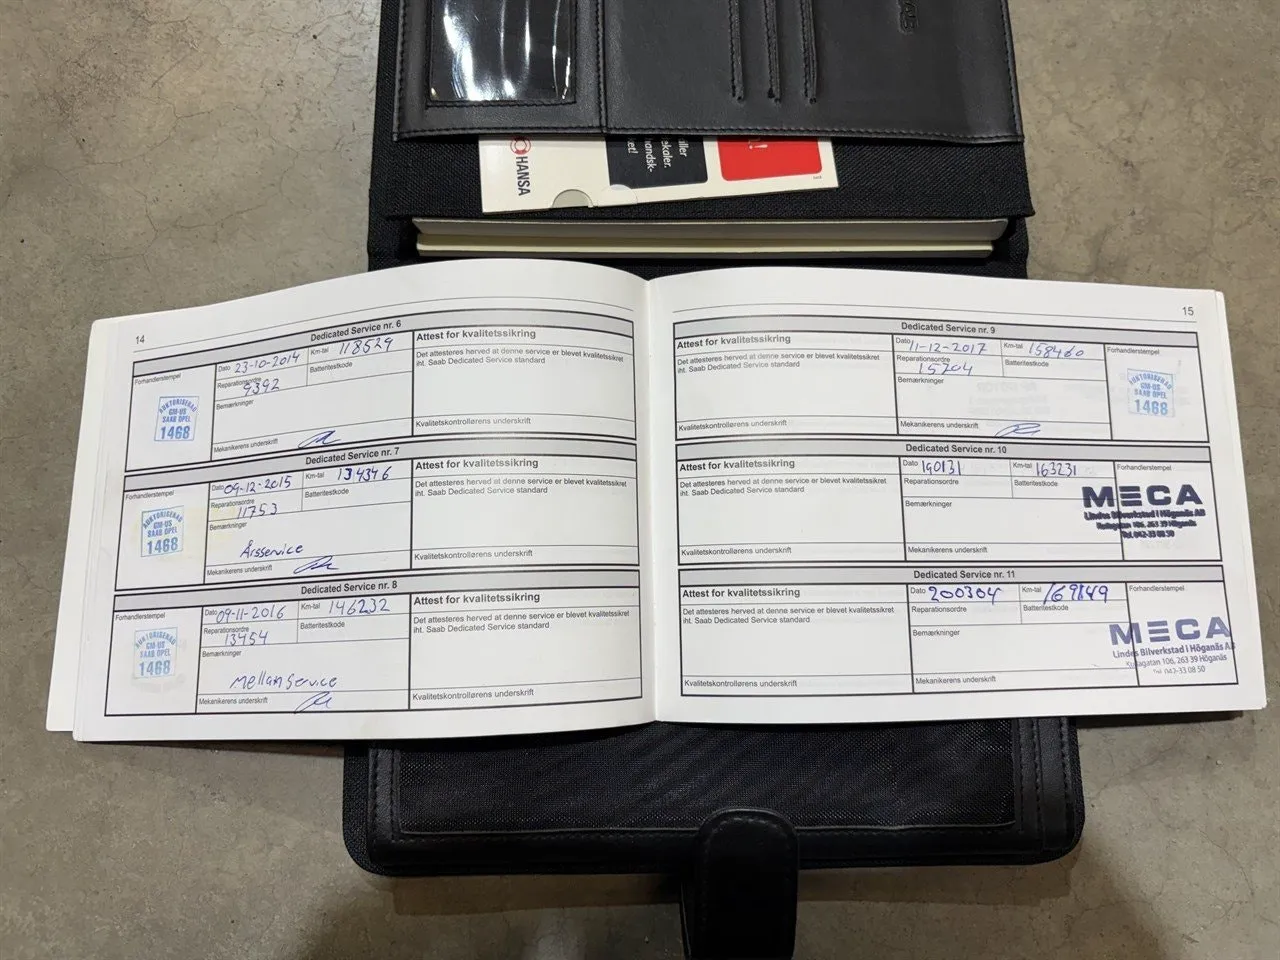 HANSA
aller
ekaler.
handsk-
et!
14
Dedicated Service nr. 6
Forhandlerstempel
AUKTORISERAD
GM-US
SAAB OPEL
1468
Dato 23-10-2014
Km-tal 118529
Reparationsordre
9392
Batteritestkode
Bemærkninger
Mekanikerens underskrift
Attest for kvalitetssikring
Det attesteres herved at denne service er blevet kvalitetssikret
iht. Saab Dedicated Service standard
Kvalitetskontrollørens underskrift
Dedicated Service nr. 7
Forhandlerstempel
AUKTORISERAD
GM-US
SAAB OPEL
1468
Dato 09-12-2015
Km-tal 134346
Reparationsordre
11753
Batteritestkode
Bemærkninger
Årsservice
Mekanikerens underskrift
Attest for kvalitetssikring
Det attesteres herved at denne service er blevet kvalitetssikret
iht. Saab Dedicated Service standard
Kvalitetskontrollørens underskrift
Dedicated Service nr. 8
Forhandlerstempel
AUKTORISERAD
GM-US
SAAB OPEL
1468
Dato 09-11-2016
Km-tal 146232
Reparationsordre
13454
Batteritestkode
Bemærkninger
Mellanservice
Mekanikerens underskrift
Attest for kvalitetssikring
Det attesteres herved at denne service er blevet kvalitetssikret
iht. Saab Dedicated Service standard
Kvalitetskontrollørens underskrift
15
Dedicated Service nr. 9
Attest for kvalitetssikring
Det attesteres herved at denne service er blevet kvalitetssikret
iht. Saab Dedicated Service standard
Kvalitetskontrollørens underskrift
Dato 11-12-2017
Km-tal 158460
Reparationsordre
15204
Batteritestkode
Bemærkninger
Mekanikerens underskrift
Forhandlerstempel
AUKTORISERAD
GM-US
SAAB OPEL
1468
Dedicated Service nr. 10
Attest for kvalitetssikring
Det attesteres herved at denne service er blevet kvalitetssikret
iht. Saab Dedicated Service standard
Kvalitetskontrollørens underskrift
Dato 190131
Km-tal 163231
Reparationsordre
Batteritestkode
Bemærkninger
Forhandlerstempel
MECA
Lindes Bilverkstad i Höganäs AB
Kullagatan 106, 263 39 Höganäs
Tel. 042-33 08 50
Dedicated Service nr. 11
Attest for kvalitetssikring
Det attesteres herved at denne service er blevet kvalitetssikret
iht. Saab Dedicated Service standard
Kvalitetskontrollørens underskrift
Dato 200304
Km-tal 169849
Reparationsordre
Batteritestkode
Bemærkninger
Mekanikerens underskrift
Forhandlerstempel
MECA
Lindes Bilverkstad i Höganäs AB
Kullagatan 106, 263 39 Höganäs
Tel. 042-33 08 50